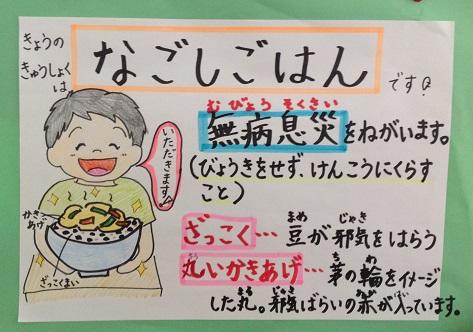 きょうの
きゅうしょく
は
なごしごはん
です♪
いただきます
むびょうそくさい
無病息災をねがいます。
(びょうきをせず、けんこうにくらす
こと)
かきあげ
ざっこくまい
まめ じゃき
ざっこく… 豆が邪気をはらう
まる ち わ
丸いかきあげ… 茅の輪をイメージ
まる じゃき あか はい
した丸。邪気ばらいの赤が入っています。